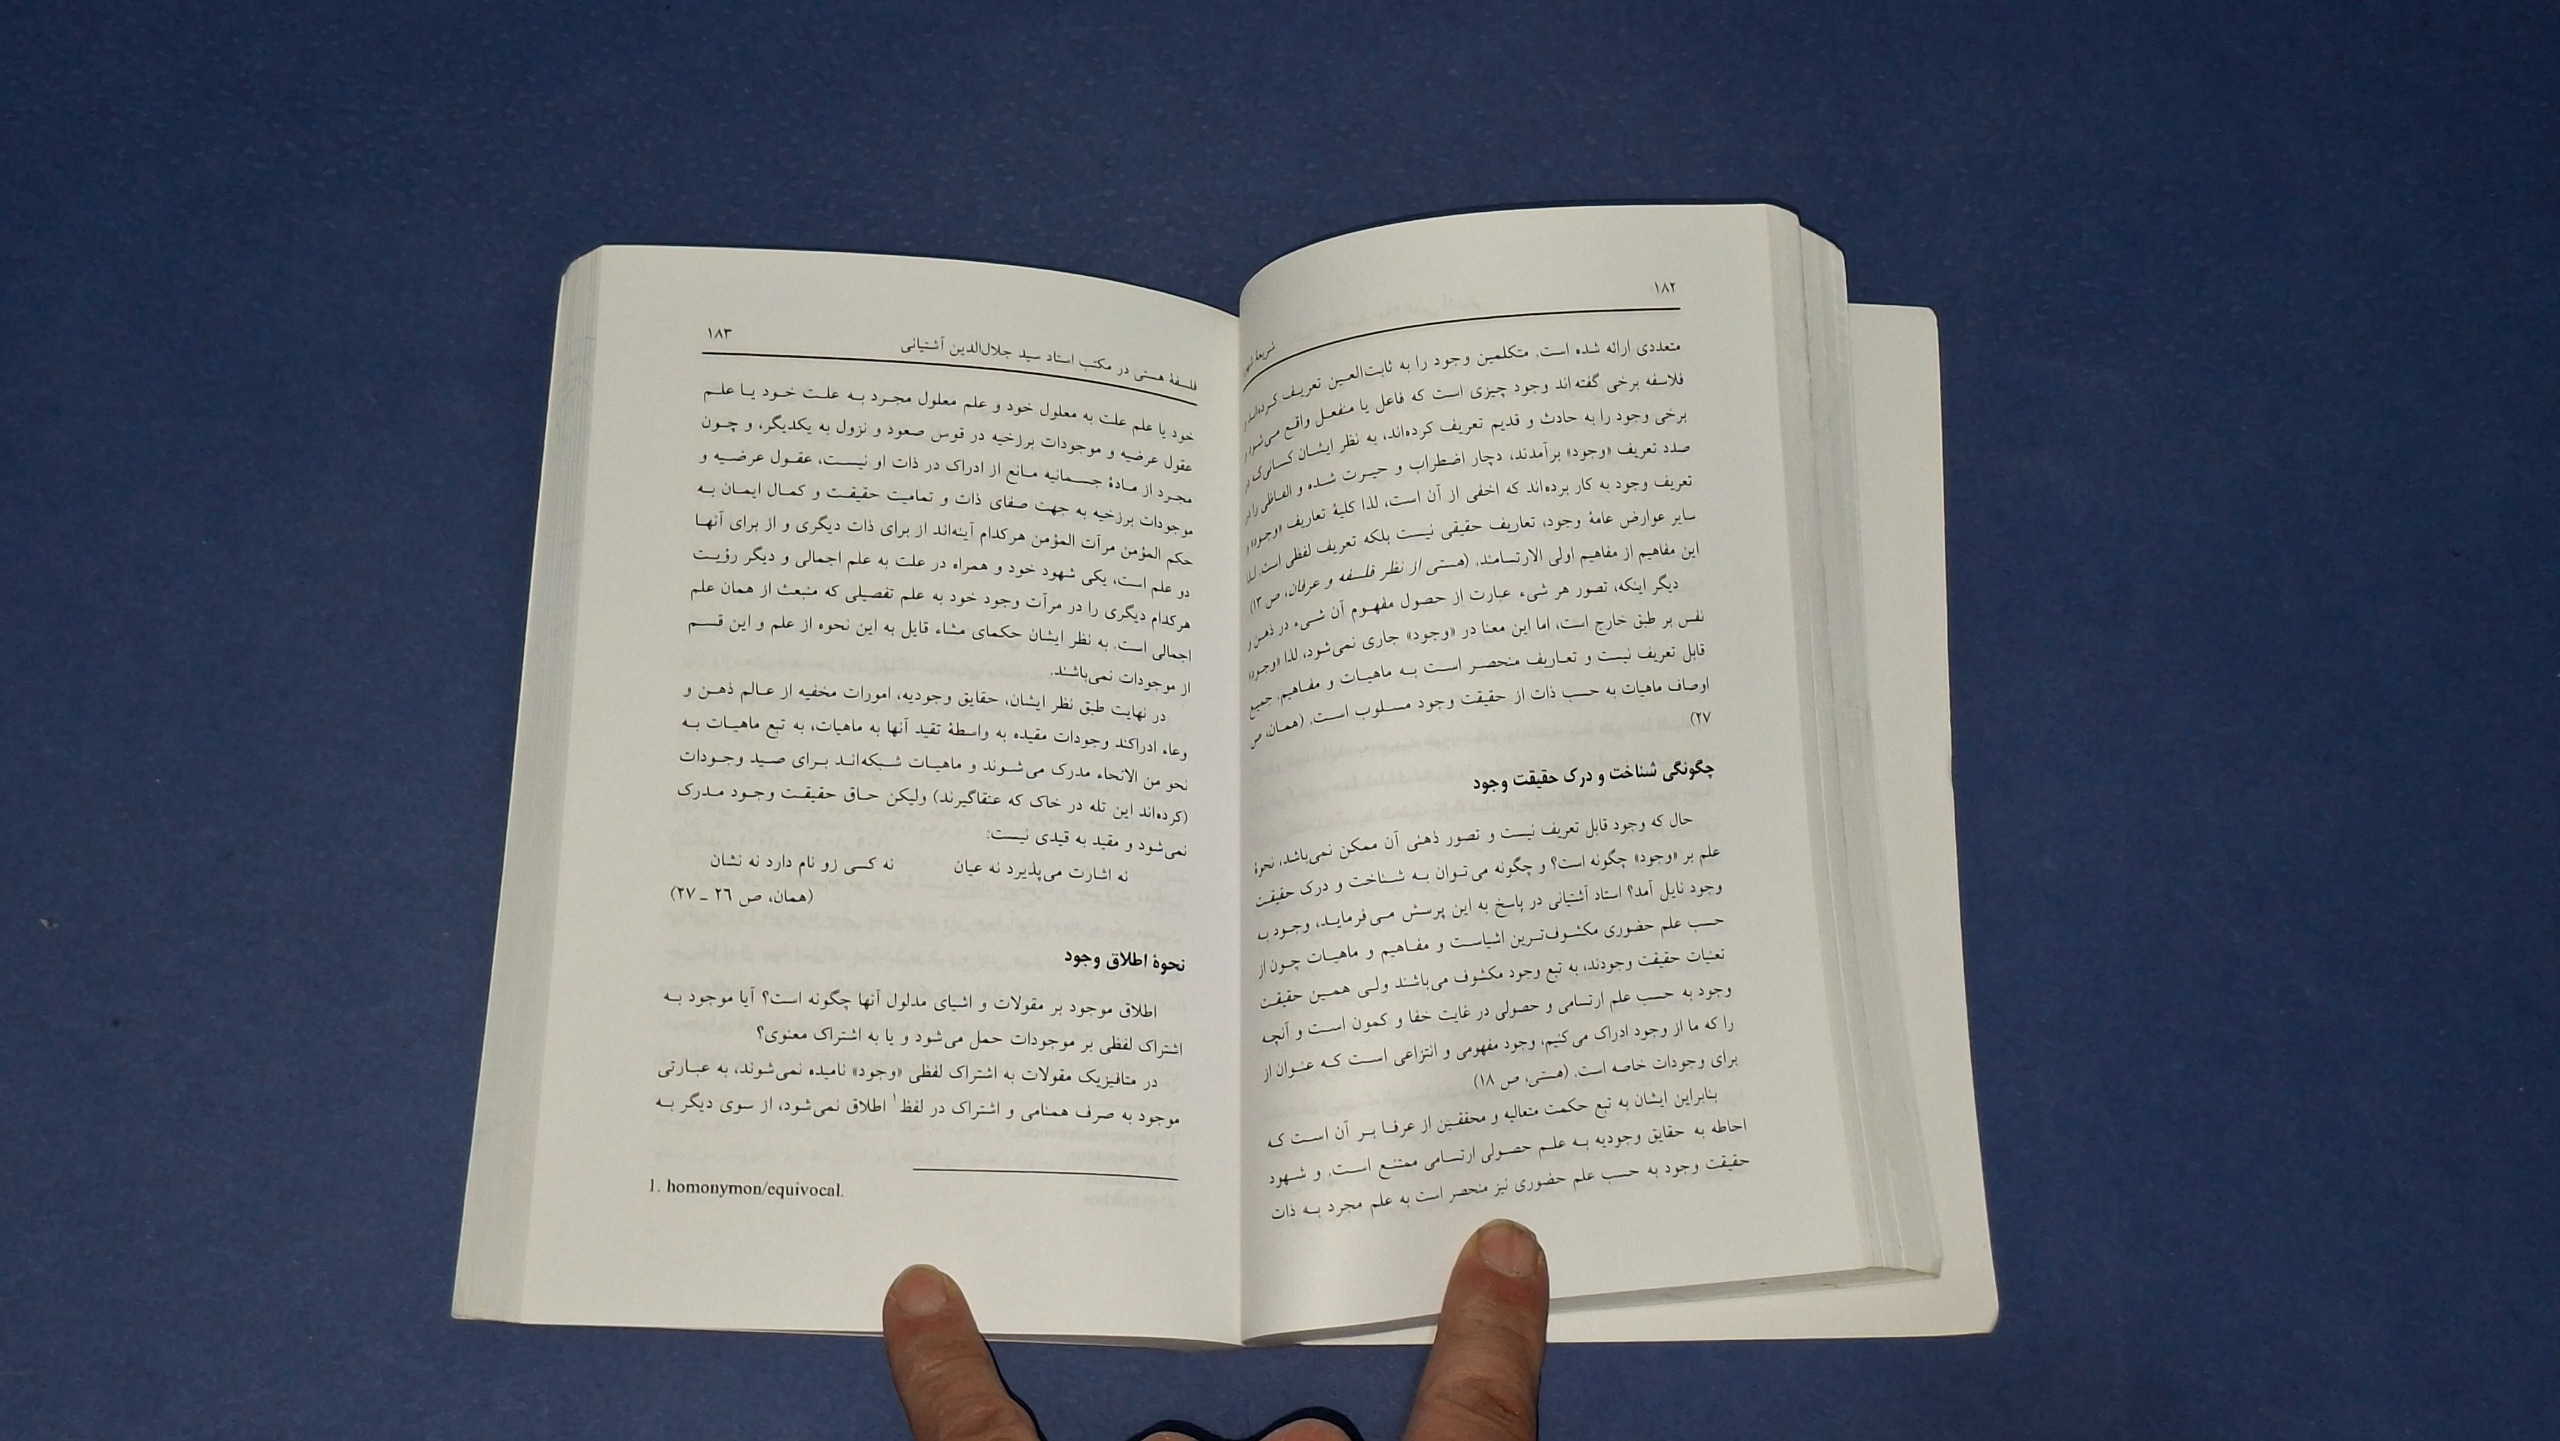 ۱۸۲
شریعهٔ
متعددی ارائه شده است. متکلمین وجود را به ثابت‌العین تعریف کرده‌اند و
فلاسفه برخی گفته‌اند وجود چیزی است که فاعل یا منفعل واقع می‌شود و
برخی وجود را به حادث و قدیم تعریف کرده‌اند، به نظر ایشان کسانی‌که در
صدد تعریف «وجود» برآمدند، دچار اضطراب و حیرت شده و الفاظی را در
تعریف وجود به کار برده‌اند که اخفی از آن است، لذا کلیهٔ تعاریف «وجود» و
سایر عوارض عامهٔ وجود، تعاریف حقیقی نیست بلکه تعریف لفظی است. لذا
این مفاهیم از مفاهیم اولی الارتسامند. (هستی از نظر فلسفه و عرفان، ص ۱۳)
دیگر اینکه، تصور هر شیء عبارت از حصول مفهوم آن شیء در ذهن و
نفس بر طبق خارج است، اما این معنا در «وجود» جاری نمی‌شود، لذا «وجود»
قابل تعریف نیست و تعاریف منحصر است به ماهیات و مفاهیم. جمیع
اوصاف ماهیات به حسب ذات از حقیقت وجود مسلوب است. (همان، ص
۲۷)
چگونگی شناخت و درک حقیقت وجود
حال که وجود قابل تعریف نیست و تصور ذهنی آن ممکن نمی‌باشد، نحوهٔ
علم بر «وجود» چگونه است؟ و چگونه می‌توان به شناخت و درک حقیقت
وجود نایل آمد؟ استاد آشتیانی در پاسخ به این پرسش می‌فرماید، وجود به
حسب علم حضوری مکشوف‌ترین اشیاست و مفاهیم و ماهیات چون از
تعنیات حقیقت وجودند، به تبع وجود مکشوف می‌باشند ولی همین حقیقت
وجود به حسب علم ارتسامی و حصولی در غایت خفا و کمون است و آنچه
را که ما از وجود ادراک می‌کنیم، وجود مفهومی و انتزاعی است که عنوان از
برای وجودات خاصه است. (هستی، ص ۱۸)
بنابراین ایشان به تبع حکمت متعالیه و محققین از عرفا بر آن است که
احاطه به حقایق وجودیه به علم حصولی ارتسامی ممتنع است. و شهود
حقیقت وجود به حسب علم حضوری نیز منحصر است به علم مجرد به ذات
فلسفهٔ هستی در مکتب استاد سید جلال‌الدین آشتیانی ۱۸۳
خود یا علم علت به معلول خود و علم معلول مجرد به علت خود یا علم
عقول عرضیه و موجودات برزخیه در قوس صعود و نزول به یکدیگر، و چون
مجرد از مادهٔ جسمانیه مانع از ادراک در ذات او نیست، عقول عرضیه و
موجودات برزخیه به جهت صفای ذات و تمامیت حقیقت و کمال ایمان به
حکم المؤمن مرآت المؤمن هرکدام آینه‌اند از برای ذات دیگری و از برای آنها
دو علم است، یکی شهود خود و همراه در علت به علم اجمالی و دیگر رؤیت
هرکدام دیگری را در مرآت وجود خود به علم تفصیلی که منبعث از همان علم
اجمالی است. به نظر ایشان حکمای مشاء قایل به این نحوه از علم و این قسم
از موجودات نمی‌باشند.
در نهایت طبق نظر ایشان، حقایق وجودیه، امورات مخفیه از عالم ذهن و
وعاء ادراکند وجودات مقیده به واسطهٔ تقید آنها به ماهیات، به تبع ماهیات به
نحو من الانحاء مدرک می‌شوند و ماهیات شبکه‌اند برای صید وجودات
(کرده‌اند این تله در خاک که عنقاگیرند) ولیکن حاق حقیقت وجود مدرک
نمی‌شود و مقید به قیدی نیست:
نه اشارت می‌پذیرد نه عیان نه کسی زو نام دارد نه نشان
(همان، ص ۲۶ ـ ۲۷)
نحوهٔ اطلاق وجود
اطلاق موجود بر مقولات و اشیای مدلول آنها چگونه است؟ آیا موجود به
اشتراک لفظی بر موجودات حمل می‌شود و یا به اشتراک معنوی؟
در متافیزیک مقولات به اشتراک لفظی «وجود» نامیده نمی‌شوند، به عبارتی
موجود به صرف همنامی و اشتراک در لفظ۱ اطلاق نمی‌شود، از سوی دیگر به
1. homonymon/equivocal.